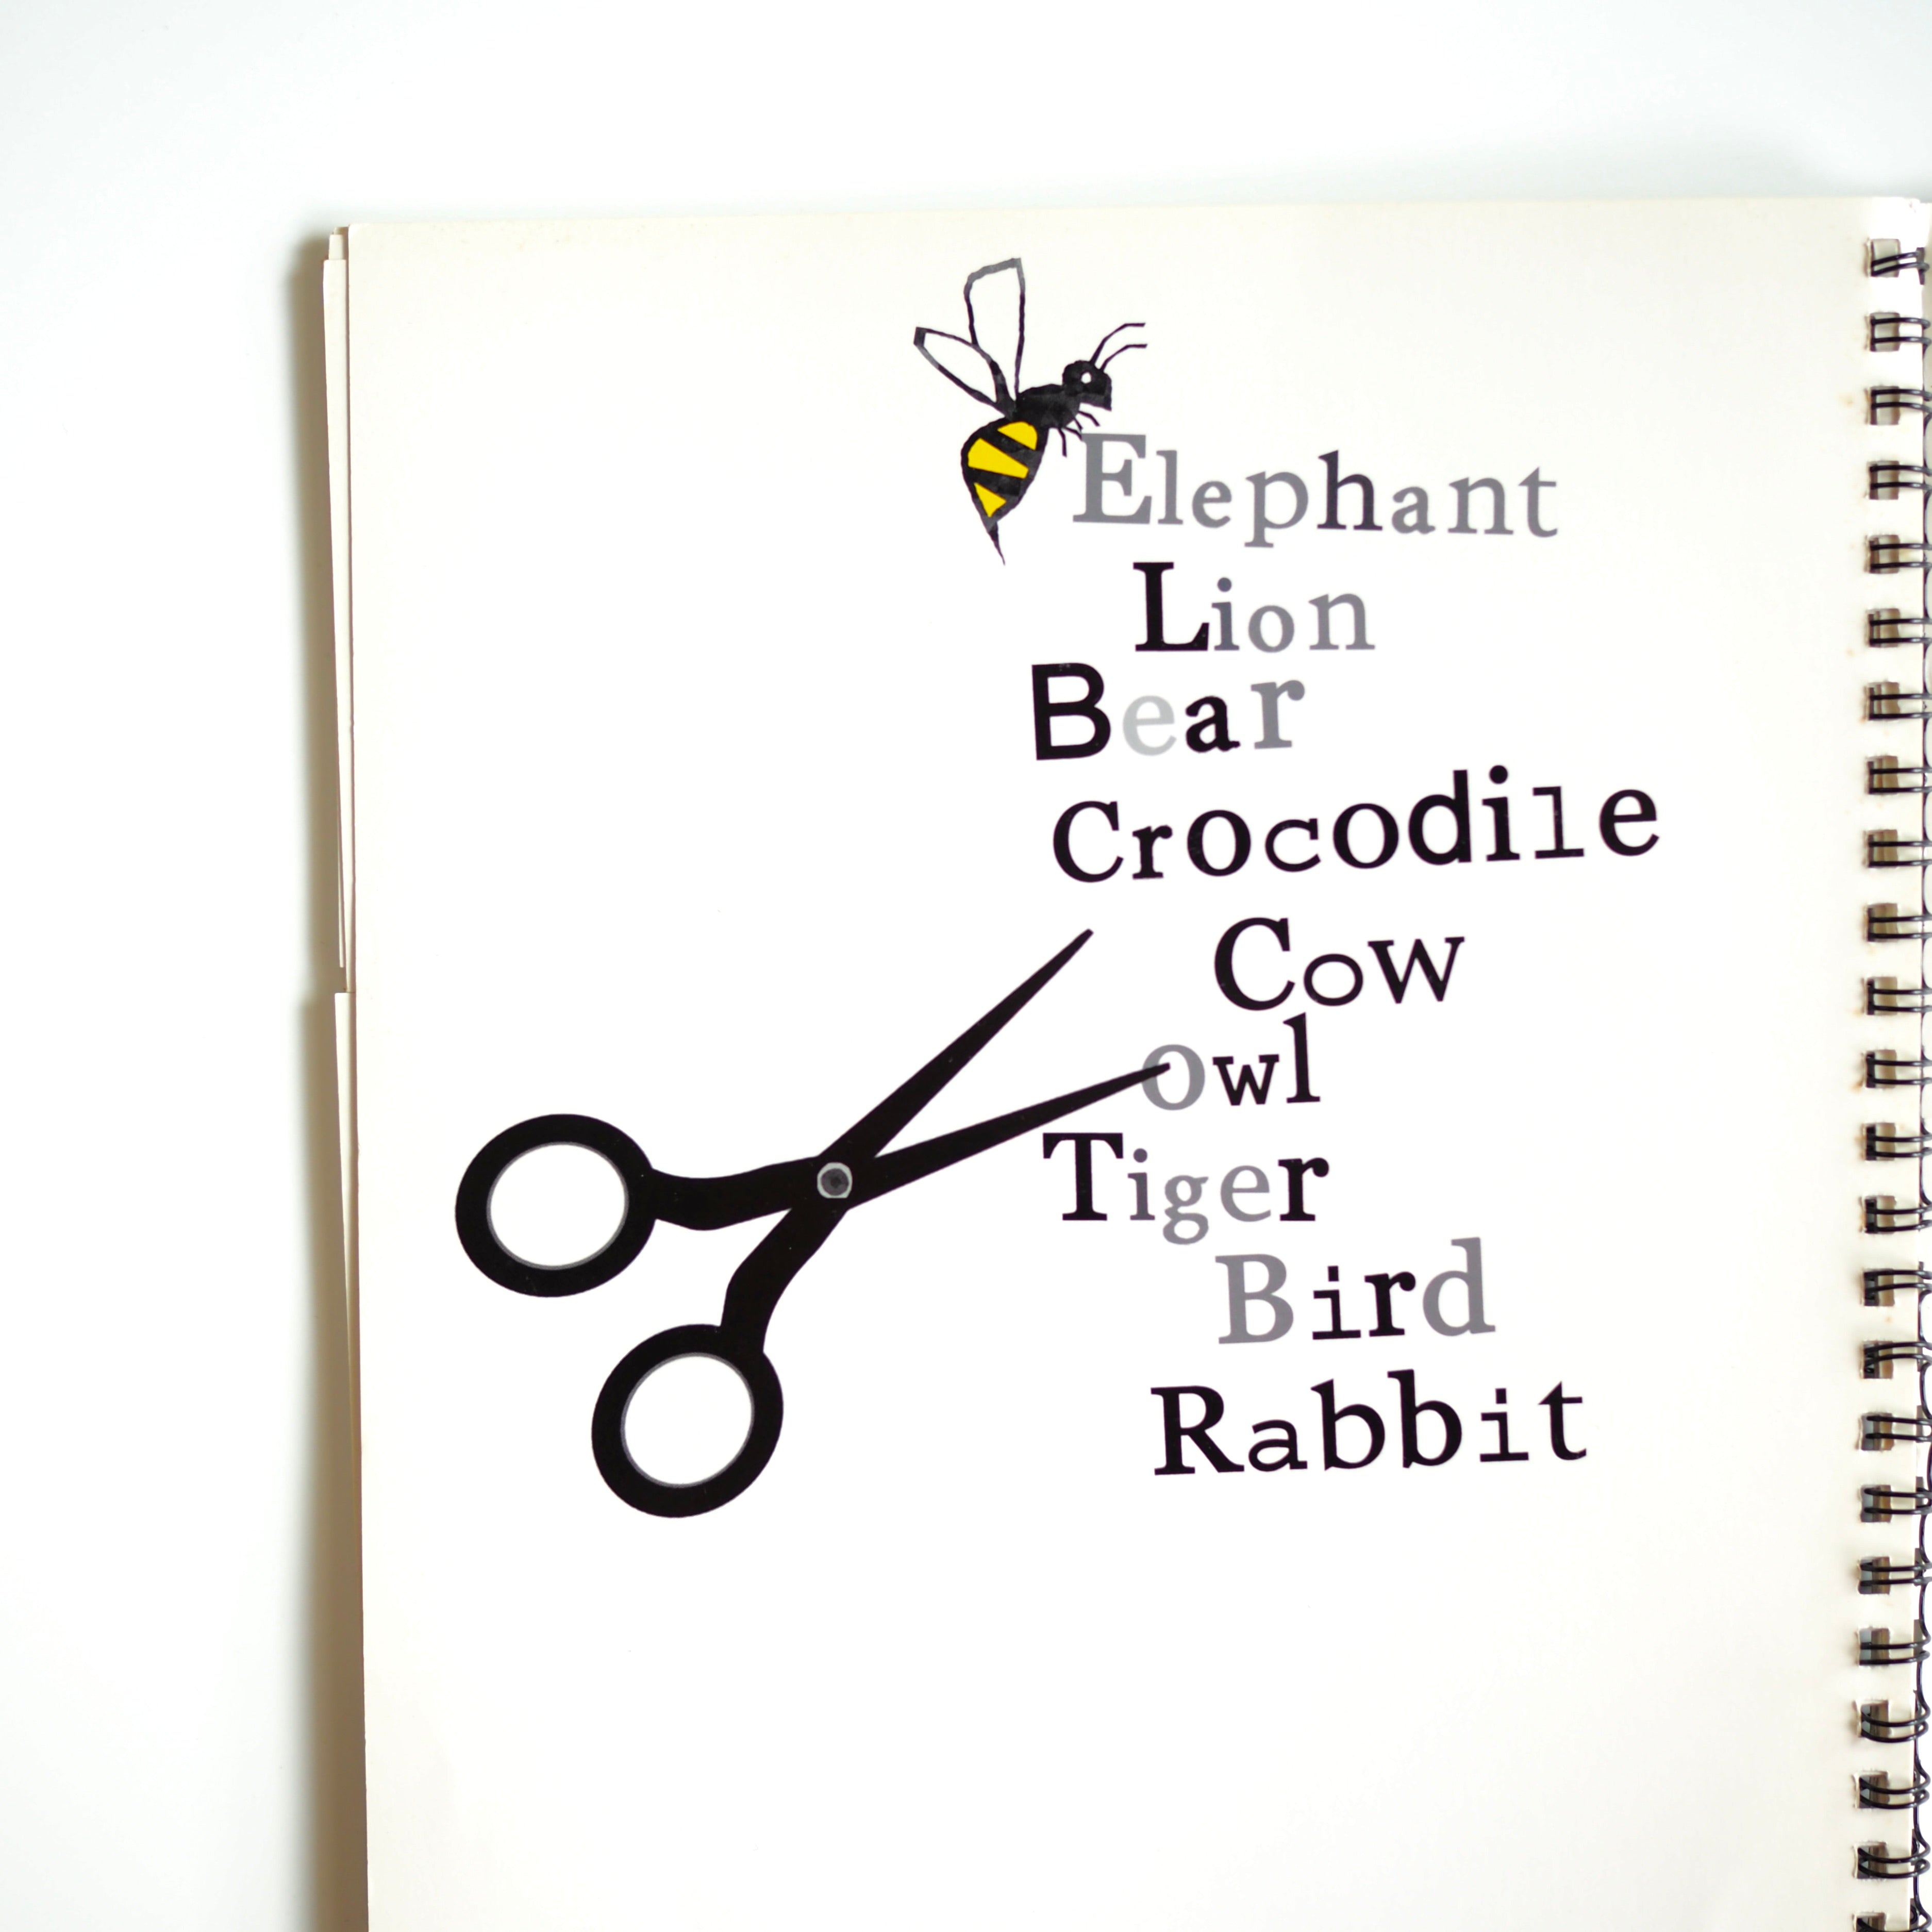 Elephant
Lion
Bear
Crocodile
Cow
owl
Tiger
Bird
Rabbit